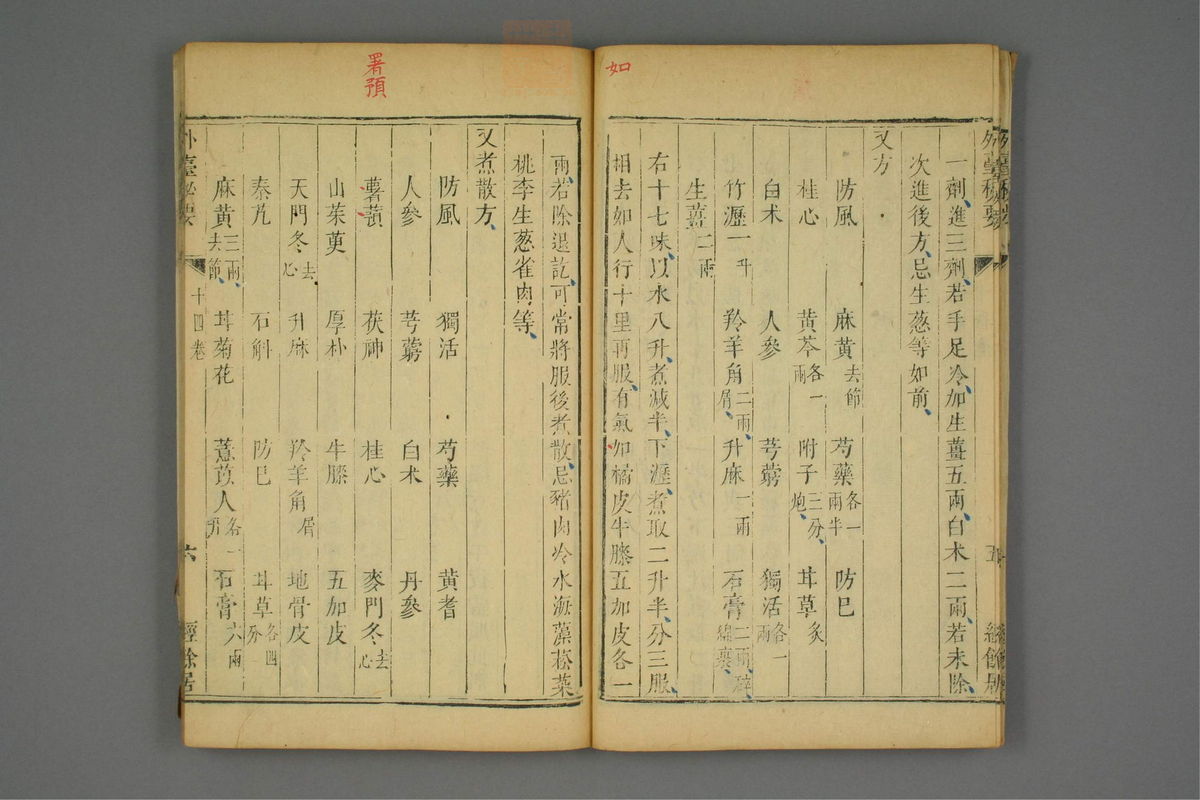 如
外臺秘要
五
經餘居
一劑、進三劑、若手足冷、加生薑五兩、白朮二兩、若未除、
次進後方、忌生葱等如前、
又方
防風 麻黃去節 芍藥各一兩半 防巳
桂心 黃芩各一兩 附子三分、炮、 甘草炙
白朮 人參 芎藭 獨活各一兩
竹瀝一升 羚羊角二兩、屑、 升麻一兩 石膏二兩、碎、綿裹、
生薑二兩
右十七味、以水八升、煮減半、下瀝、煮取二升半、分三服、
相去如人行十里再服、有氣加橘皮牛膝五加皮各一
署預
兩、若除退訖、可常將服後煮散、忌豬肉冷水海藻菘菜
桃李生葱雀肉等、
又煮散方、
防風 獨活 芍藥 黃耆
人參 芎藭 白朮 丹參
薯蕷 茯神 桂心 麥門冬去心
山茱萸 厚朴 牛膝 五加皮
天門冬去心 升麻 羚羊角屑 地骨皮
秦艽 石斛 防巳 甘草各四分
麻黃三兩、去節、 甘菊花 薏苡人各一 石膏六兩
外臺秘要
十四卷
六
經餘居